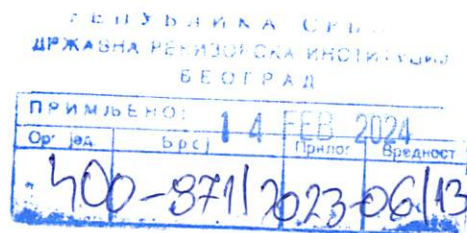 РЕПУБЛИКА СРБИЈА
ДРЖАВНА РЕВИЗОРСКА ИНСТИТУЦИЈА
БЕОГРАД
ПРИМЉЕНО: 14 FEB 2024
Орг. јед. Број Прилог Вредност
400-871/2023-06/13